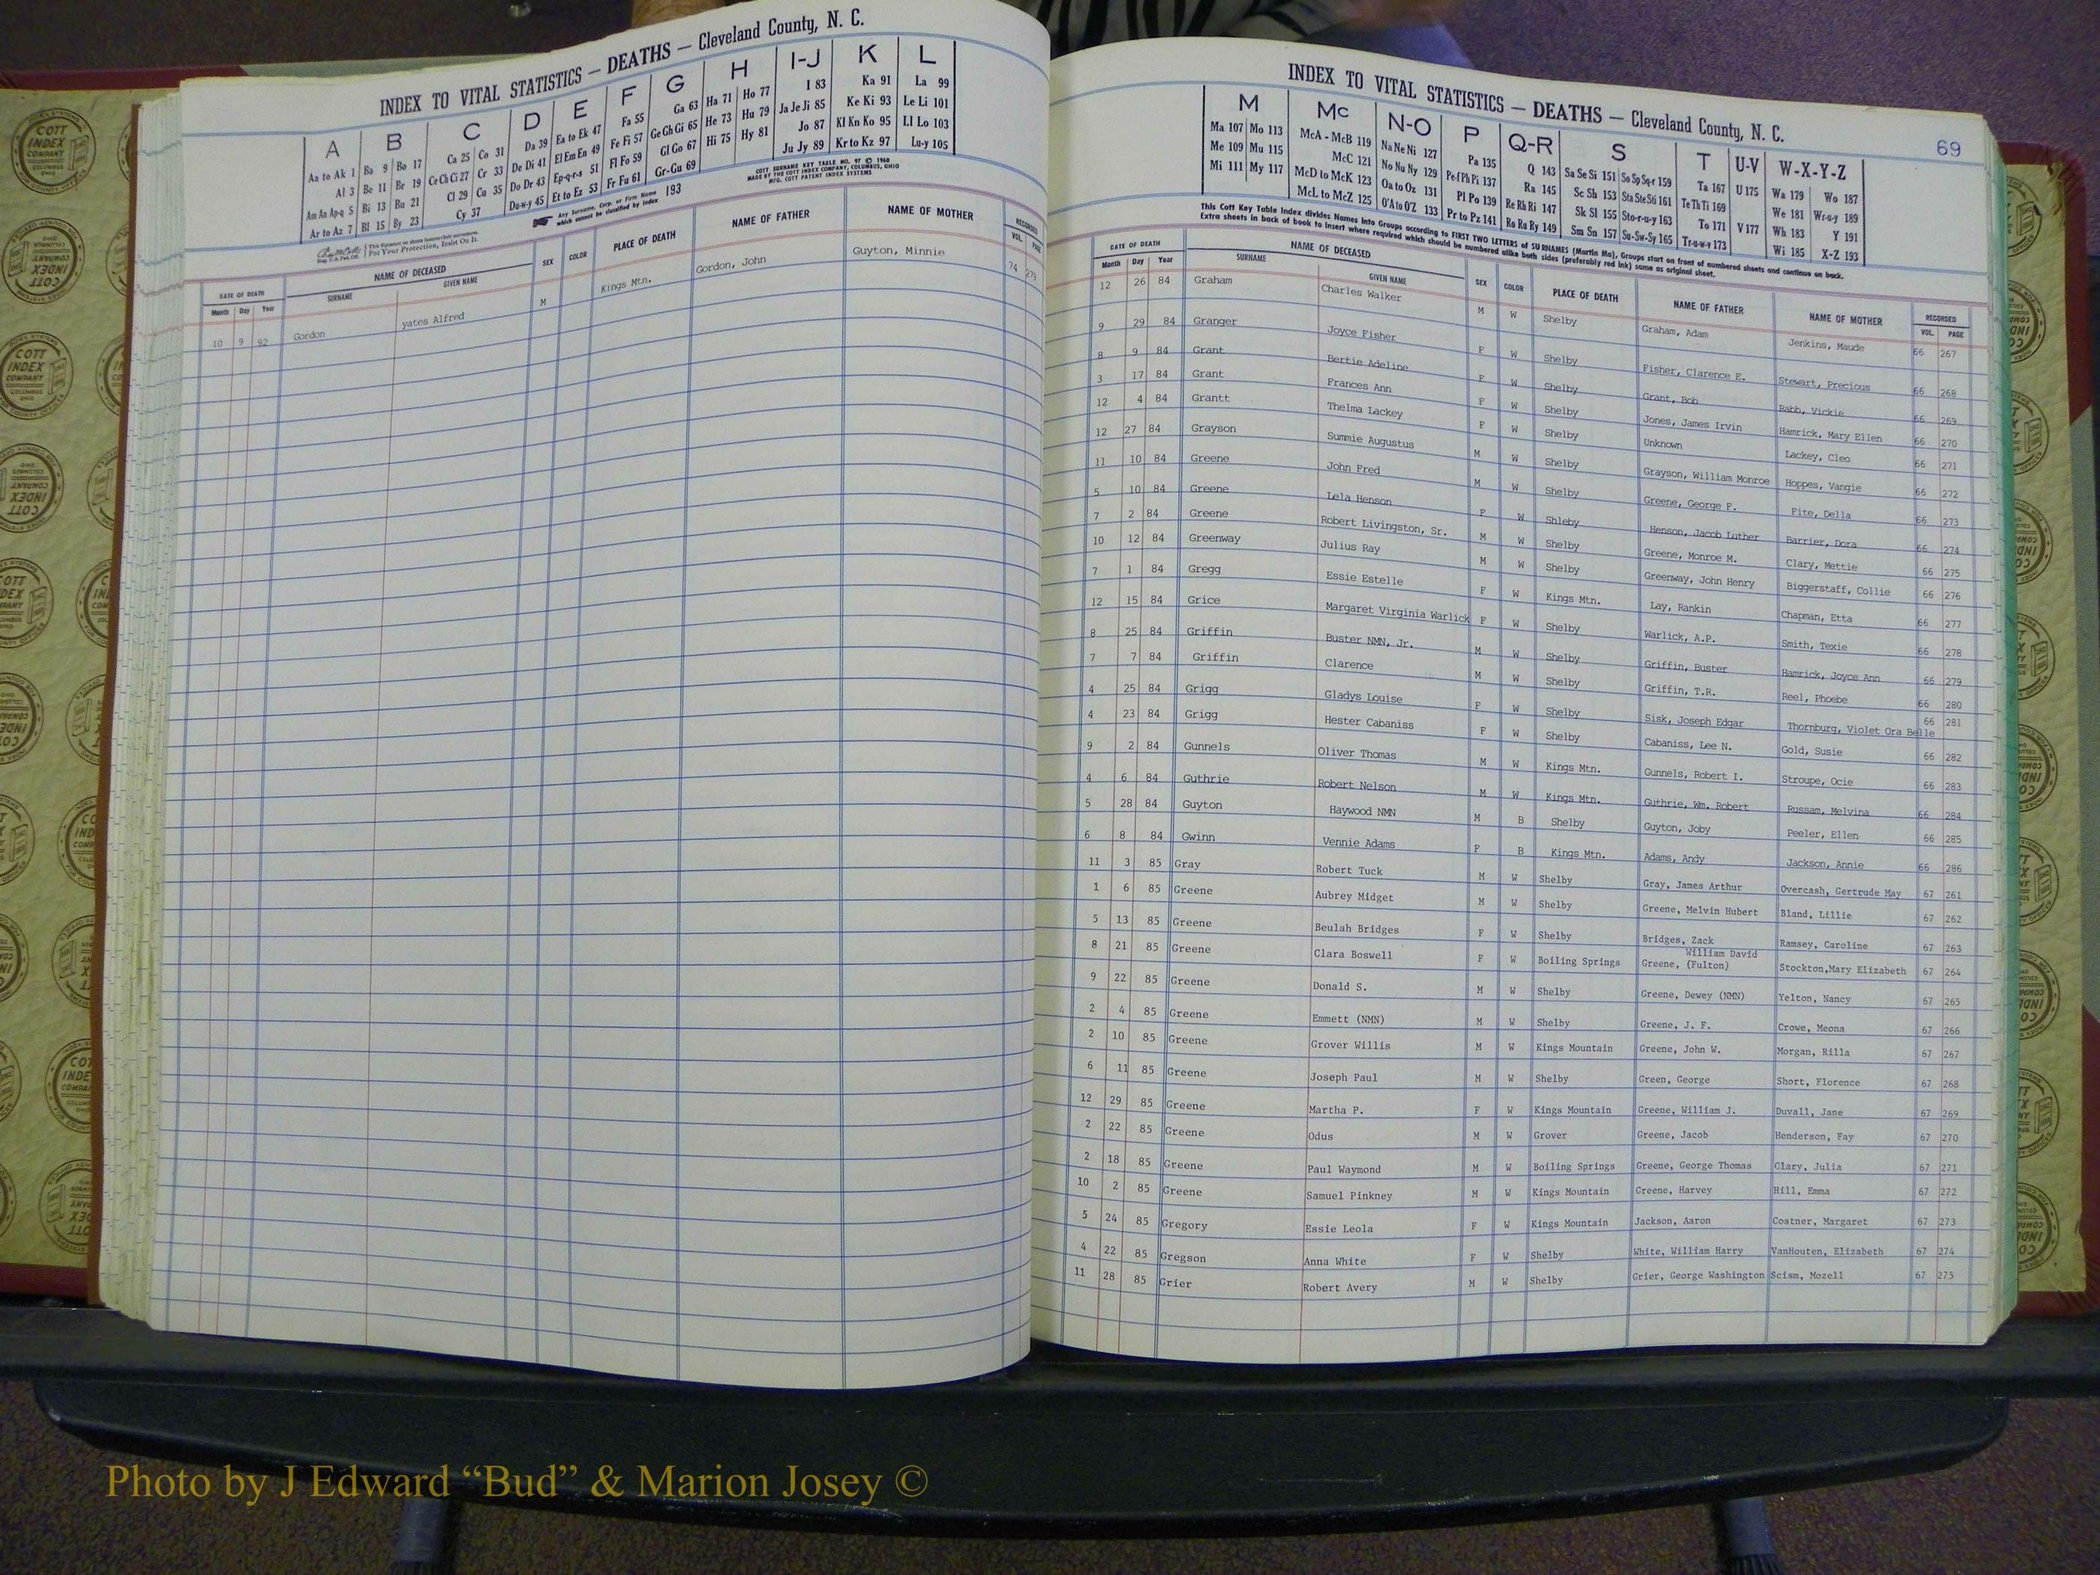 INDEX TO VITAL STATISTICS — DEATHS — Cleveland County, N. C.
A B C D E F G H I-J K L
Aa to Ak 1 Ba 9 Bo 17 Ca 25 Co 31 Da 39 Ea to Ek 47 Fa 55 Ga 63 Ha 71 Ho 77 I 83 Ka 91 La 99
Al 3 Be 11 Br 19 Ce Ch Ci 27 Cr 33 De Di 41 El Em En 49 Fe Fi 57 Ge Gh Gi 65 He 73 Hu 79 Ja Je Ji 85 Ke Ki 93 Le Li 101
Am An Ap-q 5 Bi 13 Bu 21 Cl 29 Cu 35 Do Dr 43 Ep-q-r-s 51 Fl Fo 59 Gl Go 67 Hi 75 Hy 81 Jo 87 Kl Kn Ko 95 Ll Lo 103
Ar to Az 7 Bl 15 By 23 Cy 37 Du-w-y 45 Et to Ez 53 Fr Fu 61 Gr-Gu 69 Ju Jy 89 Kr to Kz 97 Lu-y 105
For Your Protection, Insist On It.
Any Surname, Corp. or Firm Name which cannot be classified by Index 193
COTT SURNAME KEY TABLE NO. 97 © 1960
MADE BY THE COTT INDEX COMPANY, COLUMBUS, OHIO
MFG. COTT PATENT INDEX SYSTEMS
DATE OF DEATH NAME OF DECEASED SEX COLOR PLACE OF DEATH NAME OF FATHER NAME OF MOTHER RECORDED
Month Day Year SURNAME GIVEN NAME VOL. PAGE
10 9 92 Gordon yates Alfred M Kings Mtn. Gordon, John Guyton, Minnie 74 279
69
INDEX TO VITAL STATISTICS — DEATHS — Cleveland County, N. C.
M Mc N-O P Q-R S T U-V W-X-Y-Z
Ma 107 Mo 113 McA - McB 119 Na Ne Ni 127 Pa 135 Q 143 Sa Se Si 151 So Sp Sq-r 159 Ta 167 U 175 Wa 179 Wo 187
Me 109 Mu 115 McC 121 No Nu Ny 129 Pe-f Ph Pi 137 Ra 145 Sc Sh 153 Sta Ste Sti 161 Te Th Ti 169 We 181 Wr-u-y 189
Mi 111 My 117 McD to McK 123 Oa to Oz 131 Pl Po 139 Re Rh Ri 147 Sk Sl 155 Sto-r-u-y 163 To 171 V 177 Wh 183 Y 191
McL to McZ 125 O'A to O'Z 133 Pr to Pz 141 Ro Ru Ry 149 Sm Sn 157 Su-Sw-Sy 165 Tr-u-w-y 173 Wi 185 X-Z 193
This Cott Key Table Index divides Names into Groups according to FIRST TWO LETTERS of SURNAMES (Martin Ma), Groups start on front of numbered sheets and continue on back.
Extra sheets in back of book to insert where required which should be numbered alike both sides (preferably red ink) same as original sheet.
DATE OF DEATH NAME OF DECEASED SEX COLOR PLACE OF DEATH NAME OF FATHER NAME OF MOTHER RECORDED
Month Day Year SURNAME GIVEN NAME VOL. PAGE
12 26 84 Graham Charles Walker M W Shelby Graham, Adam Jenkins, Maude 66 267
9 29 84 Granger Joyce Fisher F W Shelby Fisher, Clarence E. Stewart, Precious 66 268
8 9 84 Grant Bertie Adeline F W Shelby Grant, Bob Rabb, Vickie 66 269
3 17 84 Grant Frances Ann F W Shelby Jones, James Irvin Hamrick, Mary Ellen 66 270
12 4 84 Grantt Thelma Lackey F W Shelby Unknown Lackey, Cleo 66 271
12 27 84 Grayson Summie Augustus M W Shelby Grayson, William Monroe Hoppes, Vangie 66 272
11 10 84 Greene John Fred M W Shelby Greene, George F. Fite, Della 66 273
5 10 84 Greene Lela Henson F W Shleby Henson, Jacob Luther Barrier, Dora 66 274
7 2 84 Greene Robert Livingston, Sr. M W Shelby Greene, Monroe M. Clary, Mettie 66 275
10 12 84 Greenway Julius Ray M W Shelby Greenway, John Henry Biggerstaff, Collie 66 276
7 1 84 Gregg Essie Estelle F W Kings Mtn. Lay, Rankin Chapman, Etta 66 277
12 15 84 Grice Margaret Virginia Warlick F W Shelby Warlick, A.P. Smith, Texie 66 278
8 25 84 Griffin Buster NMN, Jr. M W Shelby Griffin, Buster Hamrick, Joyce Ann 66 279
7 7 84 Griffin Clarence M W Shelby Griffin, T.R. Reel, Phoebe 66 280
4 25 84 Grigg Gladys Louise F W Shelby Sisk, Joseph Edgar Thornburg, Violet Ora Belle 66 281
4 23 84 Grigg Hester Cabaniss F W Shelby Cabaniss, Lee N. Gold, Susie 66 282
9 2 84 Gunnels Oliver Thomas M W Kings Mtn. Gunnels, Robert I. Stroupe, Ocie 66 283
4 6 84 Guthrie Robert Nelson M W Kings Mtn. Guthrie, Wm. Robert Russam, Melvina 66 284
5 28 84 Guyton Haywood NMN M B Shelby Guyton, Joby Peeler, Ellen 66 285
6 8 84 Gwinn Vennie Adams F B Kings Mtn. Adams, Andy Jackson, Annie 66 286
11 3 85 Gray Robert Tuck M W Shelby Gray, James Arthur Overcash, Gertrude May 67 261
1 6 85 Greene Aubrey Midget M W Shelby Greene, Melvin Hubert Bland, Lillie 67 262
5 13 85 Greene Beulah Bridges F W Shelby Bridges, Zack Ramsey, Caroline 67 263
8 21 85 Greene Clara Boswell F W Boiling Springs Greene, William David (Fulton) Stockton,Mary Elizabeth 67 264
9 22 85 Greene Donald S. M W Shelby Greene, Dewey (NMN) Yelton, Nancy 67 265
2 4 85 Greene Emmett (NMN) M W Shelby Greene, J. F. Crowe, Meona 67 266
2 10 85 Greene Grover Willis M W Kings Mountain Greene, John W. Morgan, Rilla 67 267
6 11 85 Greene Joseph Paul M W Shelby Green, George Short, Florence 67 268
12 29 85 Greene Martha P. F W Kings Mountain Greene, William J. Duvall, Jane 67 269
2 22 85 Greene Odus M W Grover Greene, Jacob Henderson, Fay 67 270
2 18 85 Greene Paul Waymond M W Boiling Springs Greene, George Thomas Clary, Julia 67 271
10 2 85 Greene Samuel Pinkney M W Kings Mountain Greene, Harvey Hill, Emma 67 272
5 24 85 Gregory Essie Leola F W Kings Mountain Jackson, Aaron Costner, Margaret 67 273
4 22 85 Gregson Anna White F W Shelby White, William Harry VanHouten, Elizabeth 67 274
11 28 85 Grier Robert Avery M W Shelby Grier, George Washington Scism, Mozell 67 275
Photo by J Edward “Bud” & Marion Josey ©